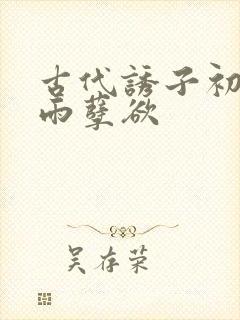 古代誘子初
雨孽欲
吴存荣